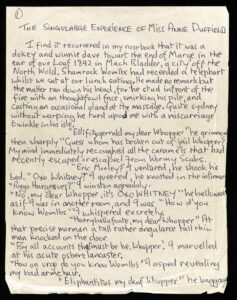 THE SINGULARGE EXPERIENCE OF MISS ANNE DUFFIELD
I find it recorered in my notebook that it was a
dokey and winnie dave towart the end of Marge in the
ear of our Loaf 1892 in Much Bladder, a city off the
North Wold. Shamrock Womlbs had receeded a telephart
whilst we sat at our lunch eating. He made no remark but
the matter ran down his head, for he stud infront of the
fire with an thoughtfowl face, smirking his pile, and
casting an occasional glance at the massage. Quite sydney
without warping he turd upod me with a miscarriage
twinkle in his
"Ellifitzgerrald my dear Whopper" he grimmon
then sharply "Guess whom has broken out of jail Whopper?"
My mind immediately recoughed all the caramels that had
recently escaped or escaped from Wormy Scabs.
"Eric Morley?" I ventured. He shook his
bed. "Oxo Whitney?" I queered, he knotted in the
"Rygo Hargraves?" I winston agreably.
"No, my dear Whopper, it's OXO WHITNEY" he bellowed
as if I was in another room, and I wasn't. "How d'you
know Womlbs?" I whispered excretely.
"Harrybellafonte, my dear Whopper." At
that precise morman a tall rather angularce tall thin
man knocked on the door.
"By all accounts that must be he, Whopper." I marvelled
at his acute osbert lancaster.
"How on urge do you know Womlbs" I asped, revealing
my bad armchair.
"Eliphantitus my deaf Whopper" he baggage